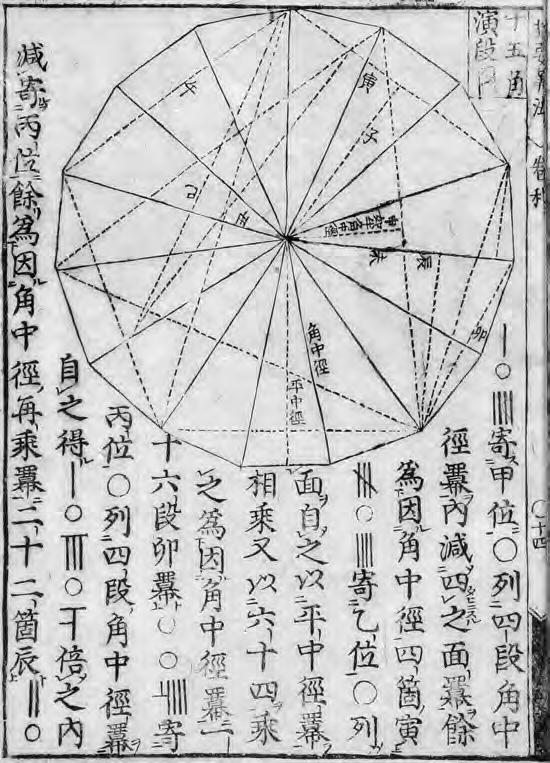 括要算法 卷利
十五角
演段圖
角中徑
平中徑
寅
子
卯
辰
己
｜〇||||寄甲位〇列四段角中
徑冪內減四之面冪餘
爲因角中徑四箇寅
〇||||寄乙位〇列
面自之以平中徑冪
相乘又以六十四乘
之爲因角中徑冪一
十六段卯冪〇〇寄
丙位〇列四段角中徑冪
自之得｜〇|||〇丅倍之內
減寄丙位餘爲因角中徑再乘冪三十二箇辰||〇
〇十四